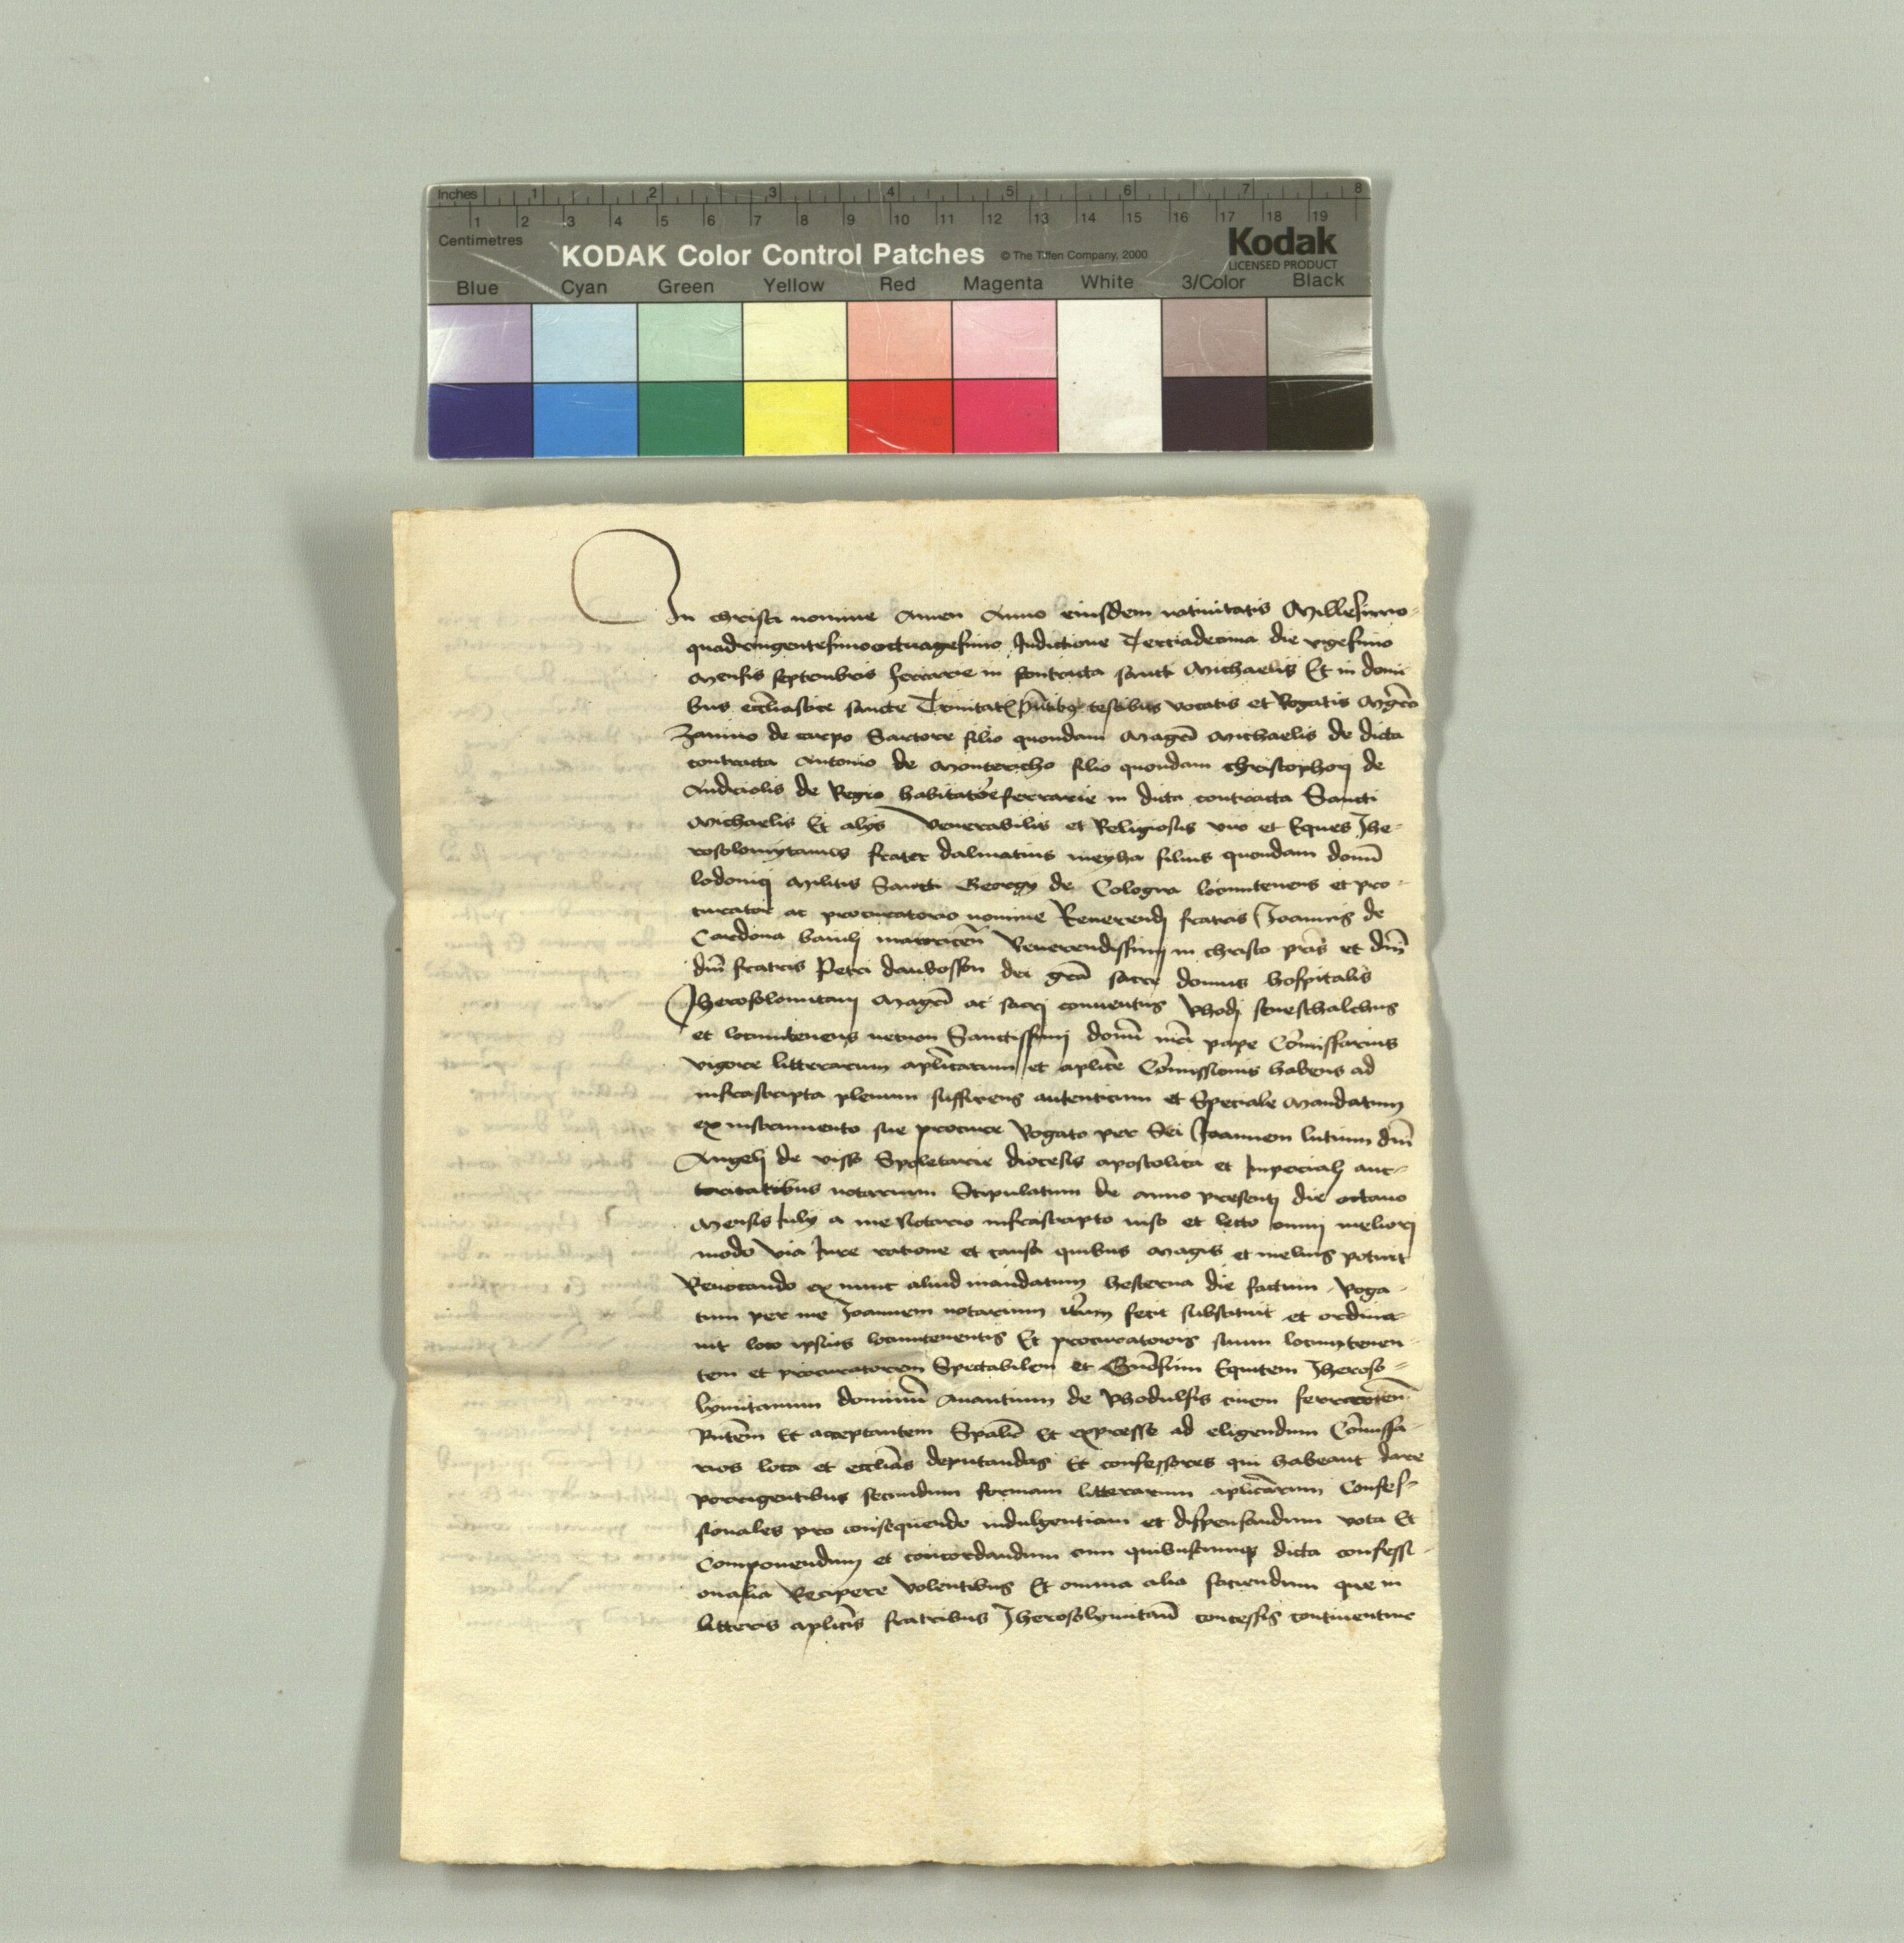 Inches 1 2 3 4 5 6 7 8
1 2 3 4 5 6 7 8 9 10 11 12 13 14 15 16 17 18 19
Centimetres
KODAK Color Control Patches © The Tiffen Company, 2000 Kodak
LICENSED PRODUCT
Blue Cyan Green Yellow Red Magenta White 3/Color Black
In christi nomine Amen Anno eiusdem natiuitatis Millesimo
quadringentesimooctuagesimo Indictione Terciadecima die vigesimo
Mensis septembris ferrarie in contracta sancti Michaelis Et in domi
bus ecclīastice sancte Trinitatꝭ pn̄tibꝰ testibus vocatis et Rogatis Mgr̄o
Zanino de carpo Sartore filio quondam Magr̄i Michaelis de dicta
contracta Antonio de Montericho filio quondam christophorj de
Andriolis de Regio habitatore ferrarie in dicta contracta Sancti
Michaelis Et alijs Venerabilis et Religiosus vir et Eques Jhe-
rosolomytanus frater dalmatius filius quondam domī
lodouicj Militis Sancti Georgij de Cologna locumtenens et pro-
curator ac procuratorio nomine Reuerendj fratris Joannis de
Cardona baiulj maioricen̄ Reuerendissimj in christo pr̄is et dn̄i
dn̄i fratris Petri daubosson dei gr̄a sacre domus hospitalis
Jherosolomitanj Magr̄i ac sacrj conuentus Rhodj seneschalchus
et locumtenens necnon Sanctissimj domī nr̄i pape Com̄issarius
vigore litterarum aplicarum et aplice Com̄issionis habens ad
infrascripta plenum sufficiens autenticum et Speciale Mandatum
ex instrumento sue procure Rogato per Ser Joannem lutium dn̄i
Angelj de visso Spoletane diocesis apostolica et Imperialj auc-
toritatibus notarium Stipulatum de anno presentj die octauo
Mensis Iulij a me Notario infrascripto viso et lecto omnj meliorj
modo via Iure ratione et causa quibus magis et melius potuit
Reuocando ex nunc aliud mandatum hesterna die factum Roga-
tum per me Joannem notarium fecit substituit et ordina-
uit loco ipsius locumtenentis Et procuratoris suum locumtenen-
tem et procuratorem Spectabilem et Gen̄osum Equitem Jheroso-
lymitanum dominum Auantium de Rhodulfis ciuem ferrarien̄
pn̄tem Et acceptantem Spal̄r Et expresse ad eligendum Com̄issa-
rios loca et eccl̄ias deputandas Et confessores qui habeant dare
porrigentibus secundum formam litterarum aplicarum Confes-
sionales pro consequendo indulgentiam et dispensandum vota Et
Componendum et concordandum cum quibuscumqꝫ dicta confessi-
onalia Recipere volentibus Et omnia alia faciendum que in
litteris aplicis fratribus Jherosolymitan̄ concessis continentur